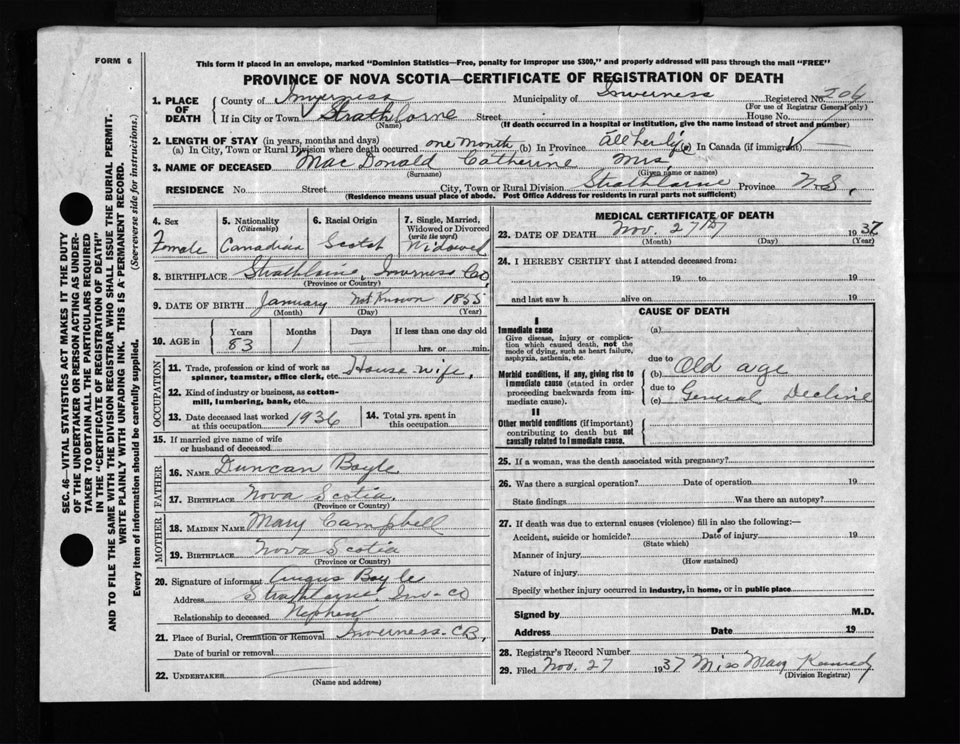 FORM 6
This form if placed in an envelope, marked "Dominion Statistics—Free, penalty for improper use $300," and properly addressed will pass through the mail "FREE"
PROVINCE OF NOVA SCOTIA—CERTIFICATE OF REGISTRATION OF DEATH
1. PLACE OF DEATH
County of Inverness Municipality of Inverness Registered No. 206
(For use of Registrar General only)
If in City or Town Strathlorne Street House No.
(Name) (If death occurred in a hospital or institution, give the name instead of street and number)
2. LENGTH OF STAY (in years, months and days)
(a) In City, Town or Rural Division where death occurred one month (b) In Province All her life (c) In Canada (if immigrant)
3. NAME OF DECEASED Mac Donald Catherine Mrs
(Surname) (Given name or names)
RESIDENCE No. Street City, Town or Rural Division Strathlorne Province N.S.
(Residence means usual place of abode. Post Office Address for residents in rural parts not sufficient)
4. Sex
Female
5. Nationality
(Citizenship)
Canadian
6. Racial Origin
Scotch
7. Single, Married, Widowed or Divorced
(write the word)
Widowed
8. BIRTHPLACE Strathlorne, Inverness Co,
(Province or Country)
9. DATE OF BIRTH January Not Known 1855
(Month) (Day) (Year)
10. AGE in
Years Months Days If less than one day old
83 1 hrs. or min.
OCCUPATION
11. Trade, profession or kind of work as spinner, teamster, office clerk, etc. House-wife,
12. Kind of industry or business, as cotton-mill, lumbering, bank, etc.
13. Date deceased last worked at this occupation 1936
14. Total yrs. spent in this occupation
15. If married give name of wife or husband of deceased
FATHER
16. NAME Duncan Boyle
17. BIRTHPLACE Nova Scotia.
(Province or Country)
MOTHER
18. MAIDEN NAME Mary Campbell
19. BIRTHPLACE Nova Scotia
(Province or Country)
20. Signature of informant Angus Boyle
Address Strathlorne, Inv-Co
Relationship to deceased Nephew
21. Place of Burial, Cremation or Removal Inverness-C.B.,
Date of burial or removal
22. UNDERTAKER
(Name and address)
MEDICAL CERTIFICATE OF DEATH
23. DATE OF DEATH Nov. 27th 1937
(Month) (Day)
24. I HEREBY CERTIFY that I attended deceased from:
19 to 19
and last saw h alive on 19
CAUSE OF DEATH
I
Immediate cause
Give disease, injury or complication which caused death, not the mode of dying, such as heart failure, asphyxia, asthenia, etc.
(a)
due to
Morbid conditions, if any, giving rise to immediate cause (stated in order proceeding backwards from immediate cause).
(b) Old age
due to
(c) General Decline
II
Other morbid conditions (if important) contributing to death but not causally related to immediate cause.
25. If a woman, was the death associated with pregnancy?
26. Was there a surgical operation? Date of operation 19
State findings Was there an autopsy?
27. If death was due to external causes (violence) fill in also the following:—
Accident, suicide or homicide? Date of injury 19
(State which)
Manner of injury
(How sustained)
Nature of injury
Specify whether injury occurred in industry, in home, or in public place
Signed by M.D.
Address Date 19
28. Registrar's Record Number
29. Filed Nov. 27 1937 Miss Mary Kennedy
(Division Registrar)
SEC. 46—VITAL STATISTICS ACT MAKES IT THE DUTY
OF THE UNDERTAKER OR PERSON ACTING AS UNDER-
TAKER TO OBTAIN ALL THE PARTICULARS REQUIRED
IN THE "CERTIFICATE OF REGISTRATION OF DEATH"
AND TO FILE THE SAME WITH THE DIVISION REGISTRAR WHO SHALL ISSUE THE BURIAL PERMIT.
WRITE PLAINLY WITH UNFADING INK. THIS IS A PERMANENT RECORD.
Every item of information should be carefully supplied. (See reverse side for instructions.)